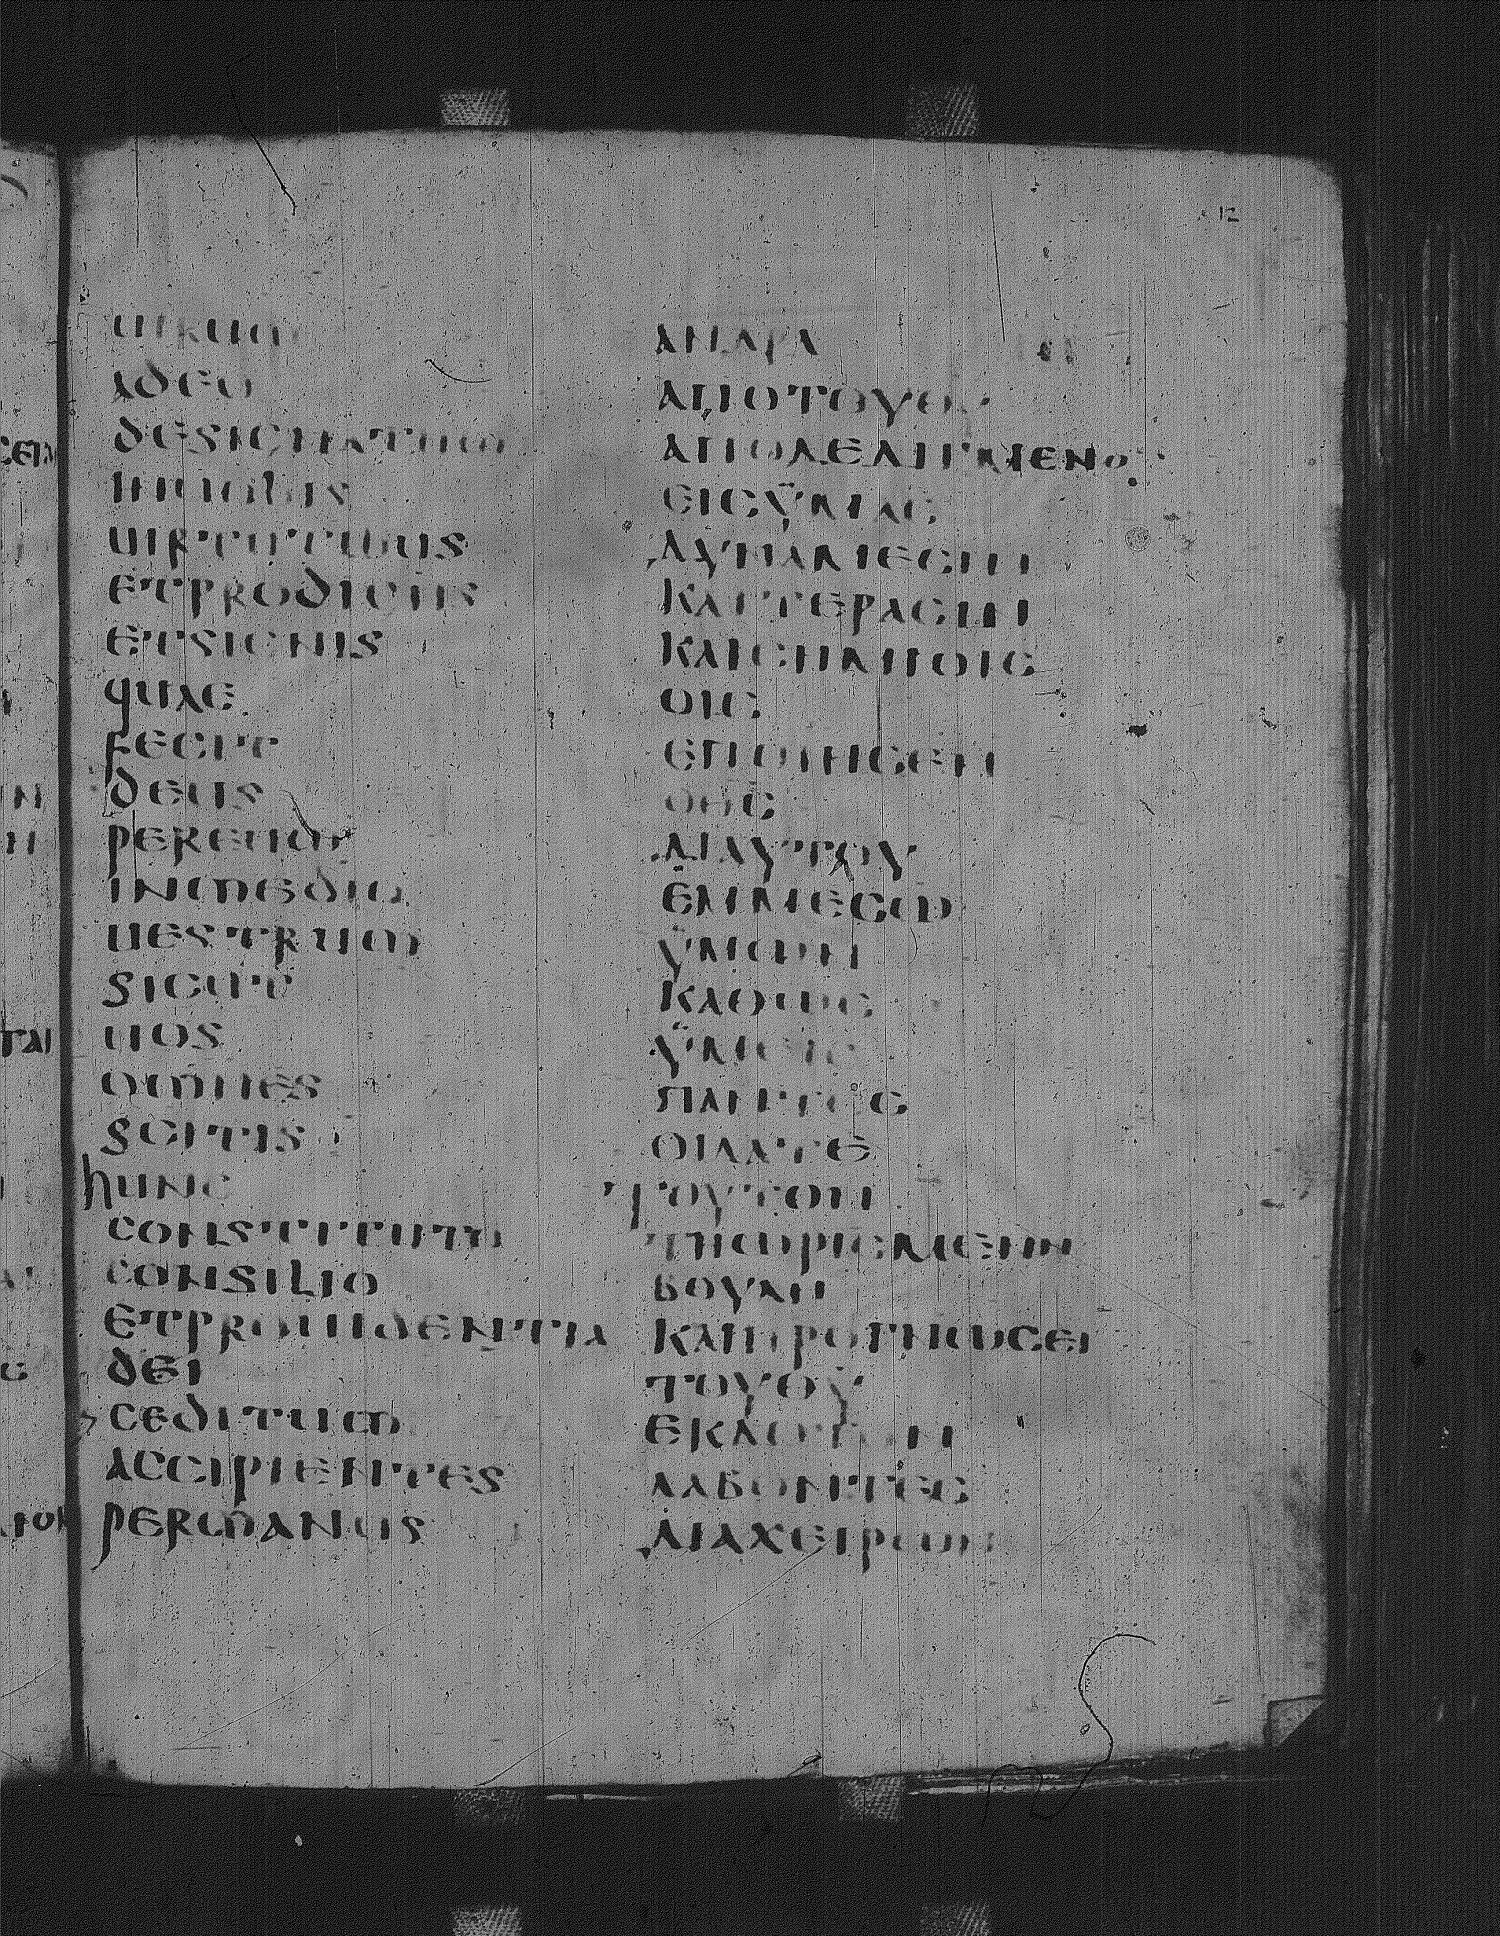 12
uirum
adeo
designatum
inuobis
uirtutibus
etprodigiis
etsignis
quae
fecit
deus
pereum
inmedio
uestrum
sicut
uos
omnes
scitis
hunc
constituto
consilio
etprouidentia
dei
ceditum
accipientes
permanus
ΑΝΔΡΑ
ΑΠΟΤΟΥΘΥ
ΑΠΟΔΕΔΙΓΜΕΝΟΝ
ΕΙCΫΜΑC
ΔΥΝΑΜΕCΙΝ
ΚΑΙΤΕΡΑCΙΝ
ΚΑΙCΗΜΙΟΙC
ΟΙC
ΕΠΟΙΗCΕΝ
ΟΘC
ΔΙΑΥΤΟΥ
ΕΜΜΕCΩ
ΫΜΩΝ
ΚΑΘΩC
ΫΜΕΙC
ΠΑΝΤΕC
ΟΙΔΑΤΕ
ΤΟΥΤΟΝ
ΤΗΩΡΙCΜΕΝΗ
ΒΟΥΛΗ
ΚΑΙΠΡΟΓΝΩCΕΙ
ΤΟΥΘΥ
ΕΚΔΟΤΟΝ
ΛΑΒΟΝΤΕC
ΔΙΑΧΕΙΡΩΝ